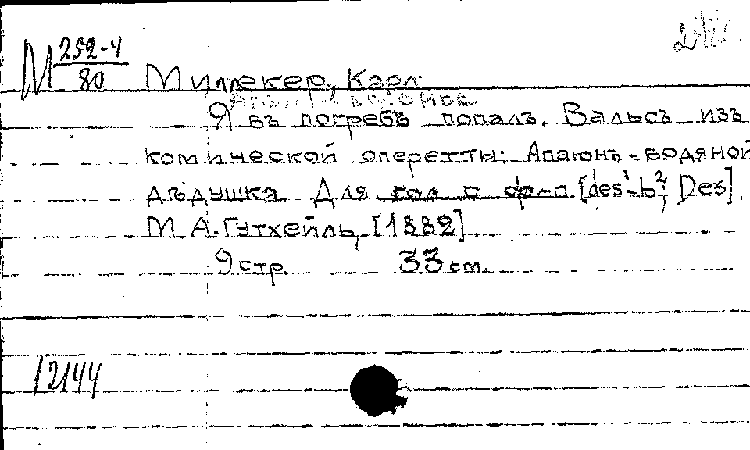 М 252-4
80
Миллекер, Карл
Я въ погребъ попалъ. Вальсъ изъ
комической оперетты: Апаюнъ-водяной
дѣдушка Для гол с ф-п. [des¹-b², Des]
М А. Гутхейль, [1882]
9 стр. 33 см.
12144